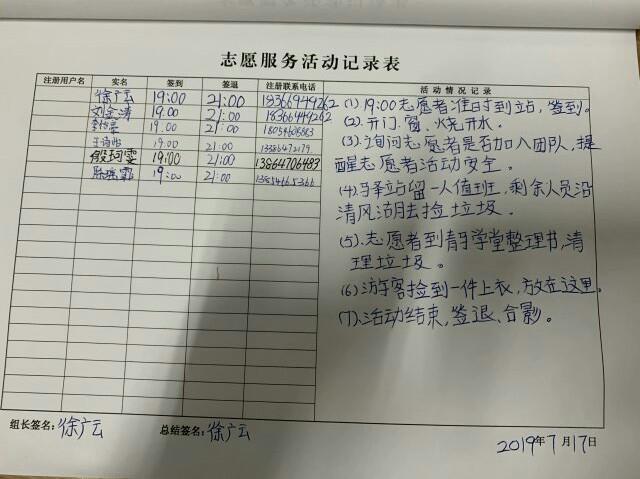 志愿服务活动记录表
注册用户名 实名 签到 签退 注册联系电话 活动情况记录
徐广云 19:00 21:00 18366949262
刘金涛 19.00 21:00 18366449262
19.00 21:00
19.00 21:00 13386472179
殷珂雯 19:00 21:00 13864706483
陈瑶霏 19:00 21:00 13854665366
(1) 19:00志愿者准时到站,签到。
(2).开门.窗、烧开水。
(3).询问志愿者是否加入团队,提
醒志愿者活动安全。
(4).驿站留一人值班,剩余人员沿
清风湖去捡垃圾。
(5).志愿者到青孚学堂整理书,清
理垃圾。
(6).游客捡到一件上衣,放在这里。
(7).活动结束,签退、合影。
组长签名:徐广云 总结签名:徐广云
2019年7月17日